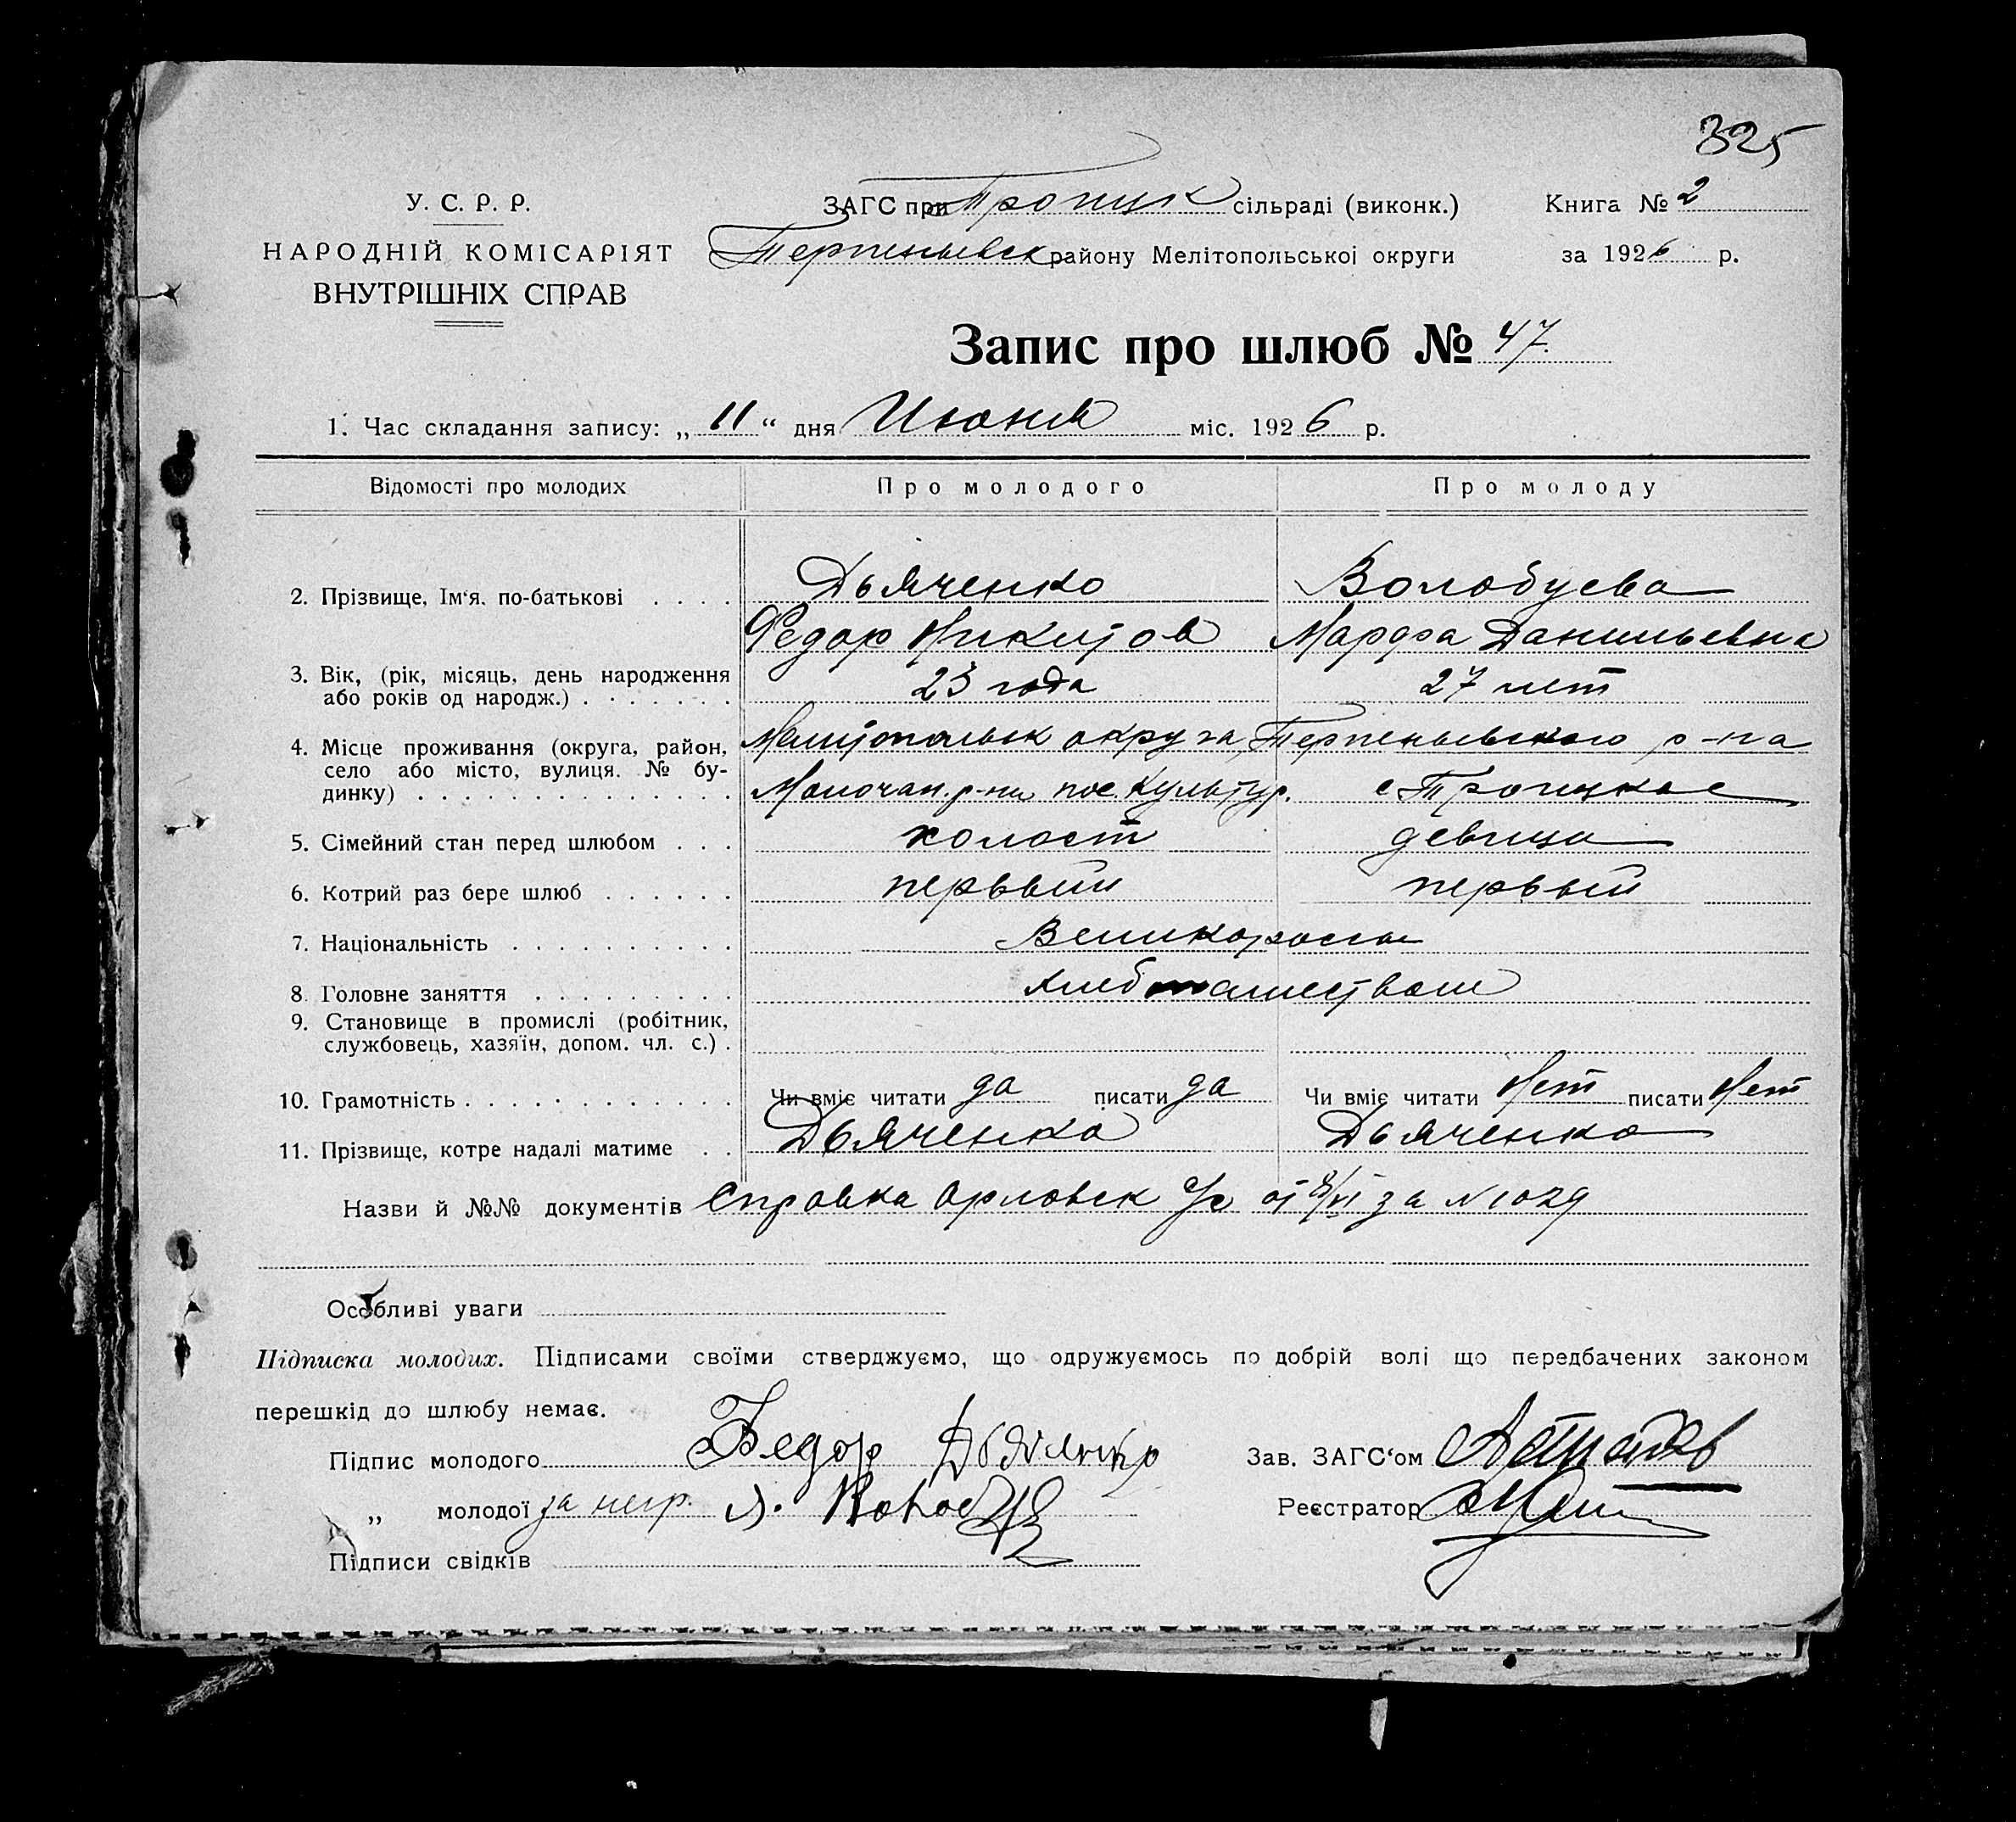 325
У. С. Р. Р.
НАРОДНІЙ КОМІСАРІЯТ
ВНУТРІШНІХ СПРАВ
ЗАГС при Троицк сільраді (виконк.)
Терпеньевск району Мелітопольської округи
Книга № 2
за 1926 р.
Запис про шлюб № 47.
1. Час складання запису: „ 11 “ дня Июня міс. 1926 р.
Відомості про молодих Про молодого Про молоду
2. Прізвище, Ім‘я. по-батькові . . . . Дьяченко Волобуева
Федор Никитов Марфа Данильевна
3. Вік, (рік, місяць, день народження
або років од народж.) . . . . . . . 23 года 27 лет
4. Місце проживання (округа, район,
село або місто, вулиця. № бу-
динку) . . . . . . . . . . . . . .
Мелитопольск округа, Терпеньевского р-на
Молочан. р-на пос. Культур. с Троицкое
5. Сімейний стан перед шлюбом . . . холост девица
6. Котрий раз бере шлюб . . . . . . первый первый
7. Національність . . . . . . . . . . Великороссы
8. Головне заняття . . . . . . . . .
9. Становище в промислі (робітник,
службовець, хазяїн, допом. чл. с.) .
10. Грамотність . . . . . . . . . . . . Чи вміє читати да писати да Чи вміє читати Нет писати Нет
11. Прізвище, котре надалі матиме . . Дьяченко Дьяченко
Назви й №№ документів Справка Орловск С/с от 8/VI за N 1029
Особливі уваги
Підписка молодих. Підписами своїми стверджуємо, що одружуємось по добрій волі що передбачених законом
перешкід до шлюбу немає.
Підпис молодого Федор Дьяченко
Зав. ЗАГС‘ом
„ молодої за негр.
Реєстратор
Підписи свідків